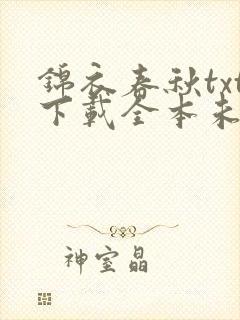 錦衣春秋txt
下載全本未
神室晶